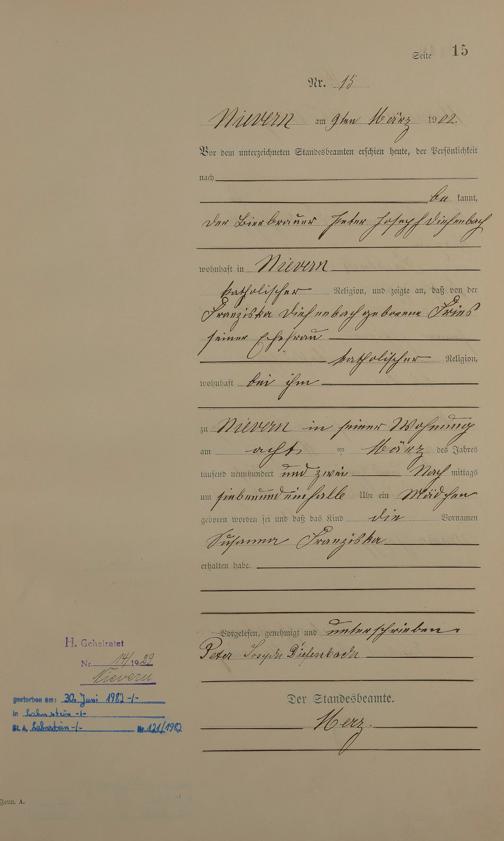 Seite 15
Nr. 15
Nievern am 9ten März 1902.
Vor dem unterzeichneten Standesbeamten erschien heute, der Persönlichkeit
nach
be kannt,
der Bierbrauer Peter Joseph Diefenbach
wohnhaft in Nievern
katholischer Religion, und zeigte an, daß von der
Franziska Diefenbach geborene Fries
seiner Ehefrau
katholischer Religion,
wohnhaft bei ihm
zu Nievern in seiner Wohnung
am acht ten März des Jahres
tausend neunhundert und zwei Nach mittags
um siebenundeinhalb Uhr ein Mädchen
geboren worden sei und daß das Kind die Vornamen
Susanna Franziska
erhalten habe.
Vorgelesen, genehmigt und unterschrieben.
Peter Joseph Diefenbach
Der Standesbeamte.
Merz.
H. Geheiratet
Nr. 14/1929
Nievern
gestorben am: 30. Juni 1982 -/-
in Lahnstein -/-
St. A. Lahnstein -/- Nr. 121/1982
Form. A.